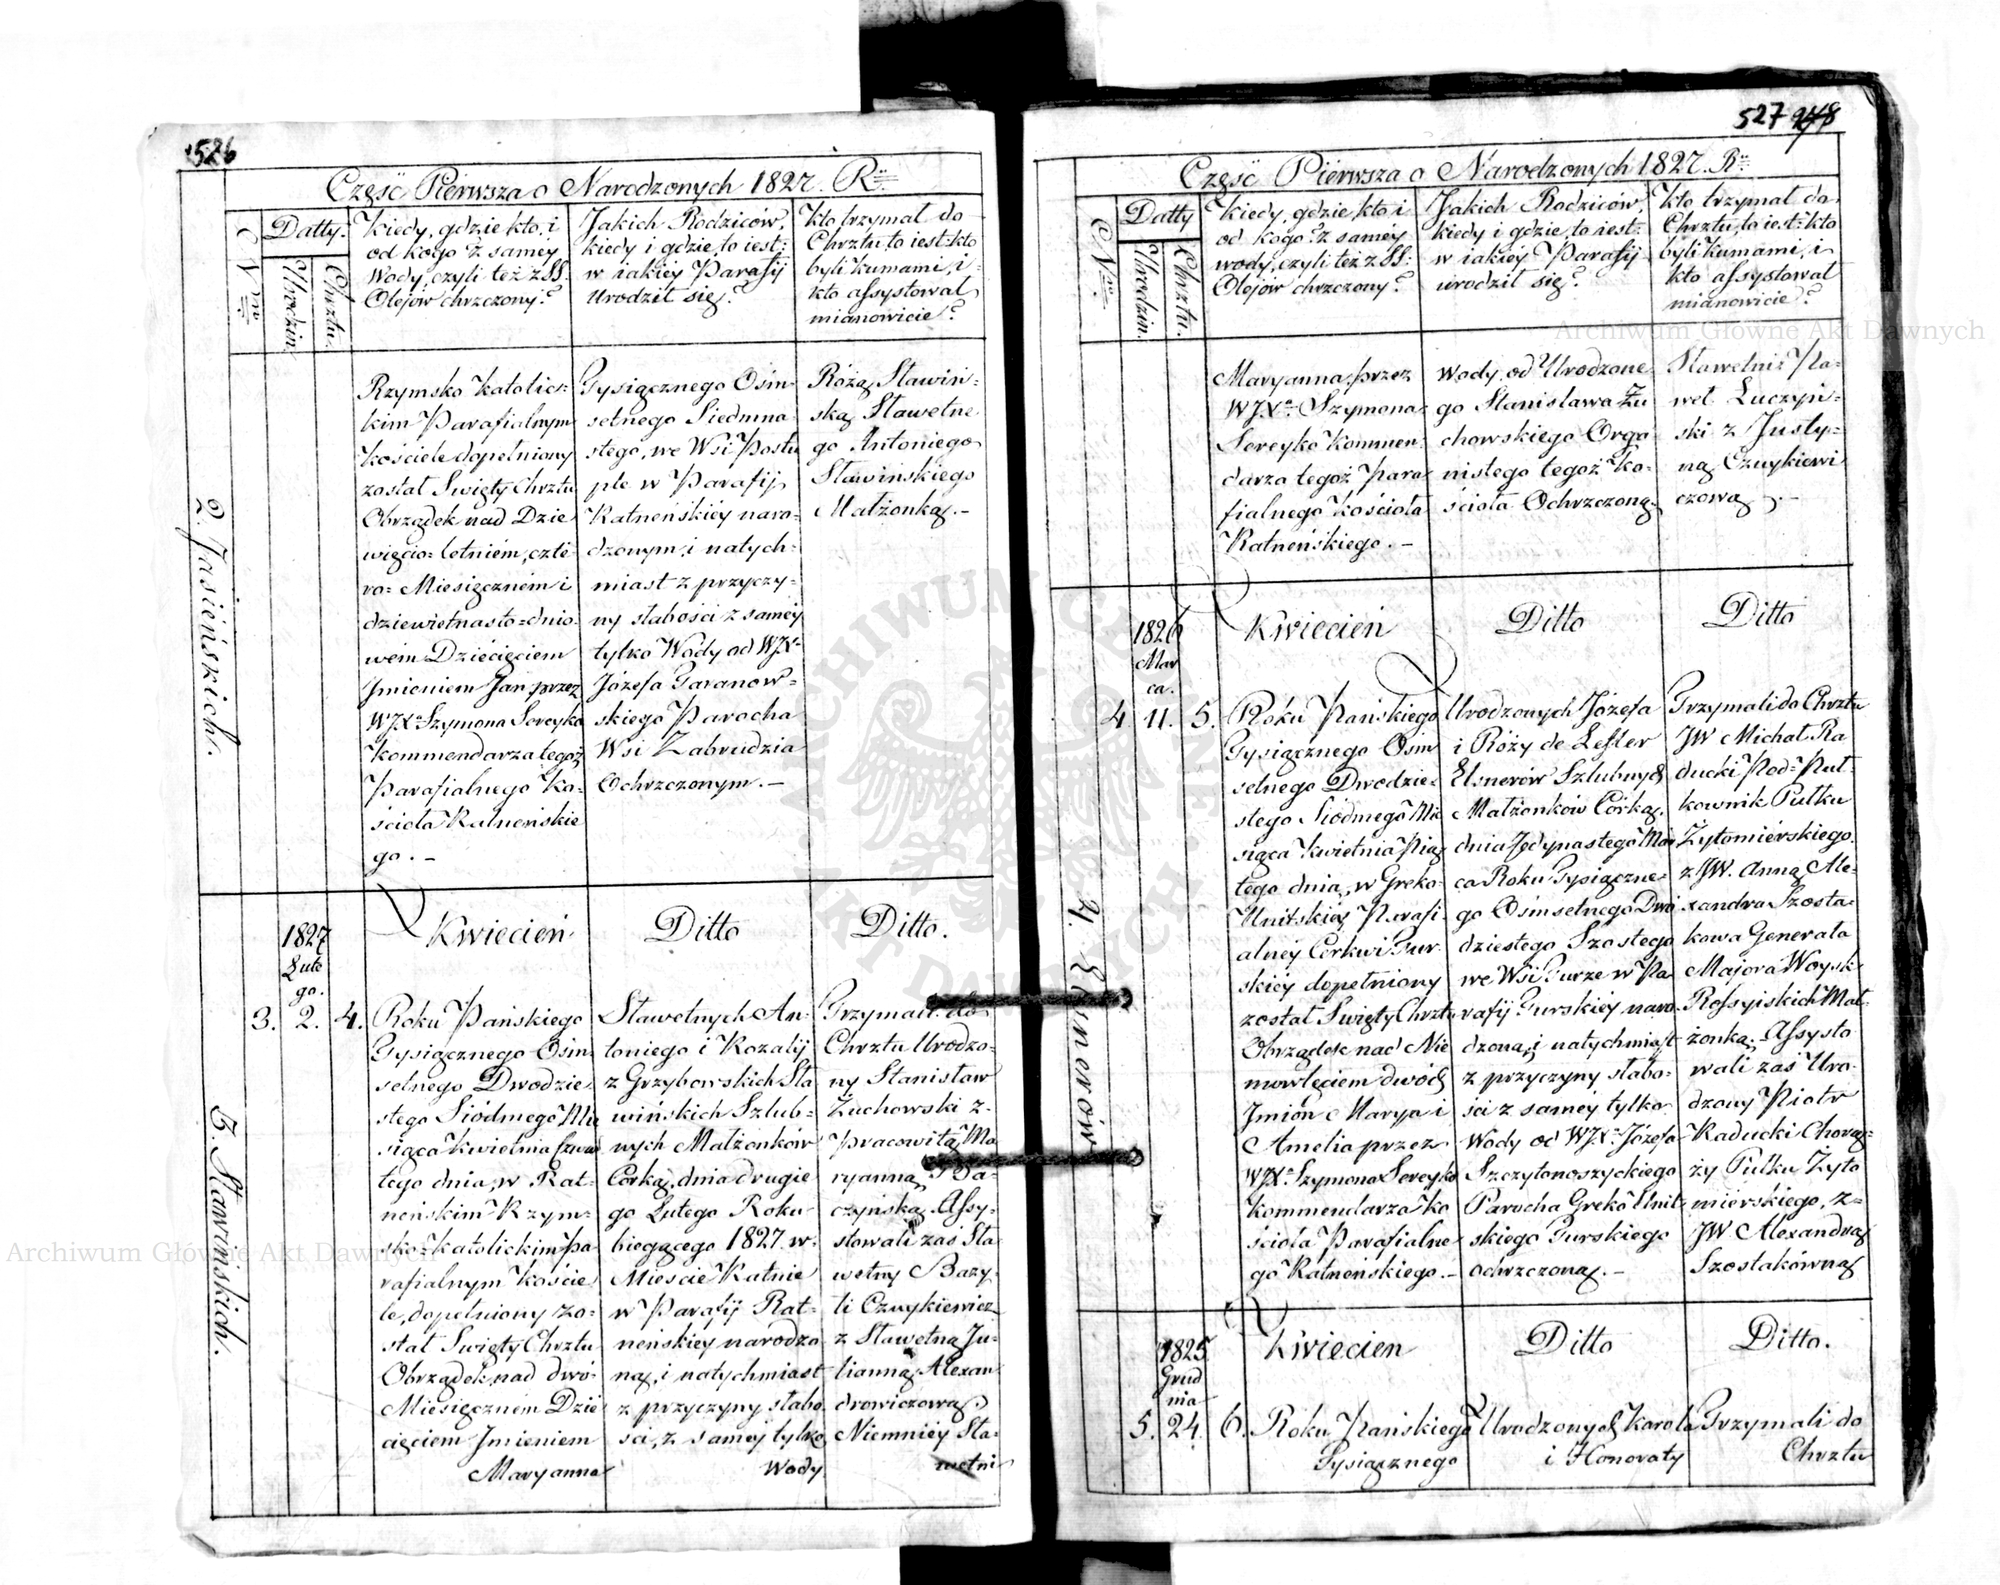 526
Część Pierwsza o Narodzonych 1827. Ru
Nro
Datty.
Urodzin.
Chrztu.
Kiedy, gdzie, kto, i
od kogo z saméy
Wody, czyli też z SS.
Olejów chrzczony?
Jakich Rodziców,
kiedy i gdzie, to iest:
w iakiéy Parafij
urodził się?
Kto trzymał do
Chrztu, to iest: kto
byli Kumami, i
kto assystował
mianowicie?
2. Jasieńskich.
Rzymsko Katolic=
kim Parafialnym
Kościele dopełniony
został Swięty Chrztu
Obrządek nad Dzie
więcio=letniém, czté
ro=Miesięczném i
dziewietnasto=dnio
wem Dziecięciem
Jmieniem Jan, przez
WJXa Szymona Sereyka
Kommendarza tegoż
Parafialnego Ko=
ścioła Ratneńskie
go.-
Tysiącznego Ośm
setnego Siedmna
stego, we Wsi Postu
ple w Parafij
Ratneńskiéy naro=
dzonym, i natych=
miast z przyczy=
ny słabości z saméy
tylko Wody od WJXa
Józefa Taranow=
skiego Parocha
Wsi Zabrudzia
Ochrzczonym.-
Różą Sławiń=
ską Sławetne
go Antoniego
Sławińskiego
Małżonką.-
3. Sławińskich.
1827
Lute
go.
Kwiecień
Ditto
Ditto.
3. 2. 4.
Roku Pańskiego
Tysiącznego Ośm
setnego Dwudzie
stego Siódmego Mie
siąca Kwietnia Czwar
tego dnia, w Rat=
neńskim Rzym=
sko=katolickim Pa
rafialnym Koście
le, dopełniony zo=
stał Swięty Chrztu
Obrządek, nad dwó=
Miesięczném Dzie
cięciem Jmieniem
Maryanna
Sławetnych An=
toniego i Rozalij
z Grzybowskich Sła
wińskich Szlub=
nych Małżonków
Córką, dnia drugie
go Lutego Roku
biegącego 1827 w=
Mieście Ratnie
w Parafij Rat=
neńskiey narodzo
ną, i natychmiast
z przyczyny słabo
sci, z saméy tylko
Wody
Trzymali do
Chrztu Urodzo=
ny Stanisław
Żuchowski z=
Pracowitą Ma
ryanną Ba=
czyńską. Assy=
stowali zaś Sła
wetny Bazy=
li Czuykiewicz
z Sławetną Ju=
lianną Alexan
drowiczową
Niemniéy Sła=
wetni
527 248
Część Pierwsza o Narodzonych 1827. Ru
Nro
Datty
Urodzin.
Chrztu.
Kiedy, gdzie, kto i
od kogo? z saméy
wody, czyli też z SS:
Olejów chrzczony?
Jakich Rodziców,
kiedy i gdzie, to iest:
w iakiéy Parafij
urodził się?
Kto trzymał do
Chrztu, to iest: kto
byli Kumami, i
kto assystował
mianowicie?
Maryanna, przez
WJXa Szymona
Sereyko Kommen
darza tegoż Para
fialnego Kościoła
Ratneńskiego.-
Wody, od Urodzone
go Stanisława Żu
chowskiego Orga
nistego tegoż Ko=
ścioła Ochrzczoną.
Sławetni: Pa=
weł Luczyń=
ski z Justy=
ną Czuykiewi
czową.-
4. Elsnerów
1826
Mar
ca.
Kwiecień
Ditto
Ditto
4 11. 5.
Roku Pańskiego
Tysiącznego Ośm
setnego Dwudzie=
stego Siódmego Mie
siąca Kwietnia Pią
tego dnia, w Greko=
Unitskiéy Parafi=
alnéy Cerkwi Tur=
skiéy dopełniony
został Swięty Chrztu
Obrządek nad Nie
mowlęciem dwóch
Jmion Marya i
Amelia przez
WJXa Szymona Sereyko
Kommendarza Ko
ścioła Parafialne
go Ratneńskiego.-
Urodzonych Józefa
i Róży de Lesler
Elsnerów Szlubnych
Małżonków Córką,
dnia Jedynastego Mar
ca Roku Tysiączne=
go Ośmsetnego Dwu
dziestego Szostego
we Wsi Turze w Pa
rafij Turskiey naro=
dzoną, i natychmiast
z przyczyny słabo=
ści z saméy tylko
Wody od WJXa Józefa
Szczytonoszyckiego
Parocha Greko Unit
skiego Turskiego
ochrzczoną.-
Trzymali do Chrztu
JW Michał Ra
ducki Pod=Puł=
kownik Pułku
Żytomiérskiego
z JW. Anną Ale=
xandra Szosta=
kowa Generała
Majora Woysk
Rossyiskich Mał=
żonką.- Assysto
wali zaś Uro=
dzony Piotr
Raducki Chorą=
ży Pułku Żyto
miérskiego, z=
JW Alexandrą
Szostakówną
1825
Grud
nia
Kwiecien
Ditto
Ditto.
5. 24. 6.
Roku Pańskiego
Tysiącznego
Urodzonych Karola
i Honoraty
Trzymali do
Chrztu
Archiwum Główne Akt Dawnych
Archiwum Główne Akt Dawnych
ARCHIWUM GŁÓWNE AKT DAWNYCH